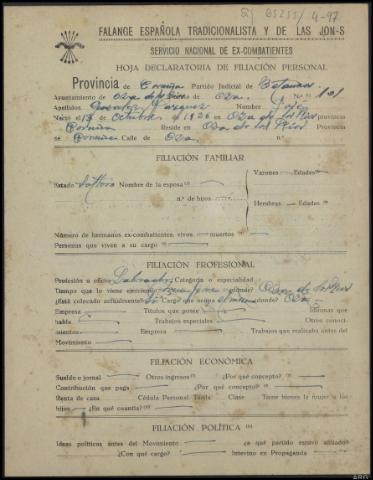 FALANGE ESPAÑOLA TRADICIONALISTA Y DE LAS JON-S
SERVICIO NACIONAL DE EX-COMBATIENTES
HOJA DECLARATORIA DE FILIACIÓN PERSONAL
Provincia de Coruña Partido Judicial de Betanzos
Ayuntamiento de Oza de Oza N.º 101
Apellidos Vazquez Nombre José
Nació el 13 de Octubre de 1926 en Oza de los Ríos provincia
Coruña Reside en Oza de los Ríos Provincia
Coruña Calle de Oza n.º
FILIACIÓN FAMILIAR
Estado Soltero Nombre de la esposa
Varones Edades
n.º de hijos
Hembras Edades
Número de hermanos ex-combatientes vivos muertos
Personas que viven a su cargo
FILIACIÓN PROFESIONAL
Profesión u oficio Labrador Categoría o especialidad
Tiempo que lo viene ejerciendo ¿dónde? Oza de los Ríos
¿Está colocado actualmente? Si Cargo que ocupa el mismo ¿dónde? Oza
Empresa Títulos que posee Idiomas que
habla Trabajos especiales Otros conoci-
mientos Empresa Trabajos que realizaba antes del
Movimiento
FILIACIÓN ECONÓMICA
Sueldo o jornal Otros ingresos ¿Por qué concepto?
Contribución que paga ¿Por qué concepto?
Renta de casa Cédula Personal Tarifa Clase Tiene bienes la mujer o los
hijos ¿En qué cuantía?
FILIACIÓN POLÍTICA
Ideas políticas antes del Movimiento ¿a qué partido estuvo afiliado
¿Con qué cargo? Intervino en Propaganda